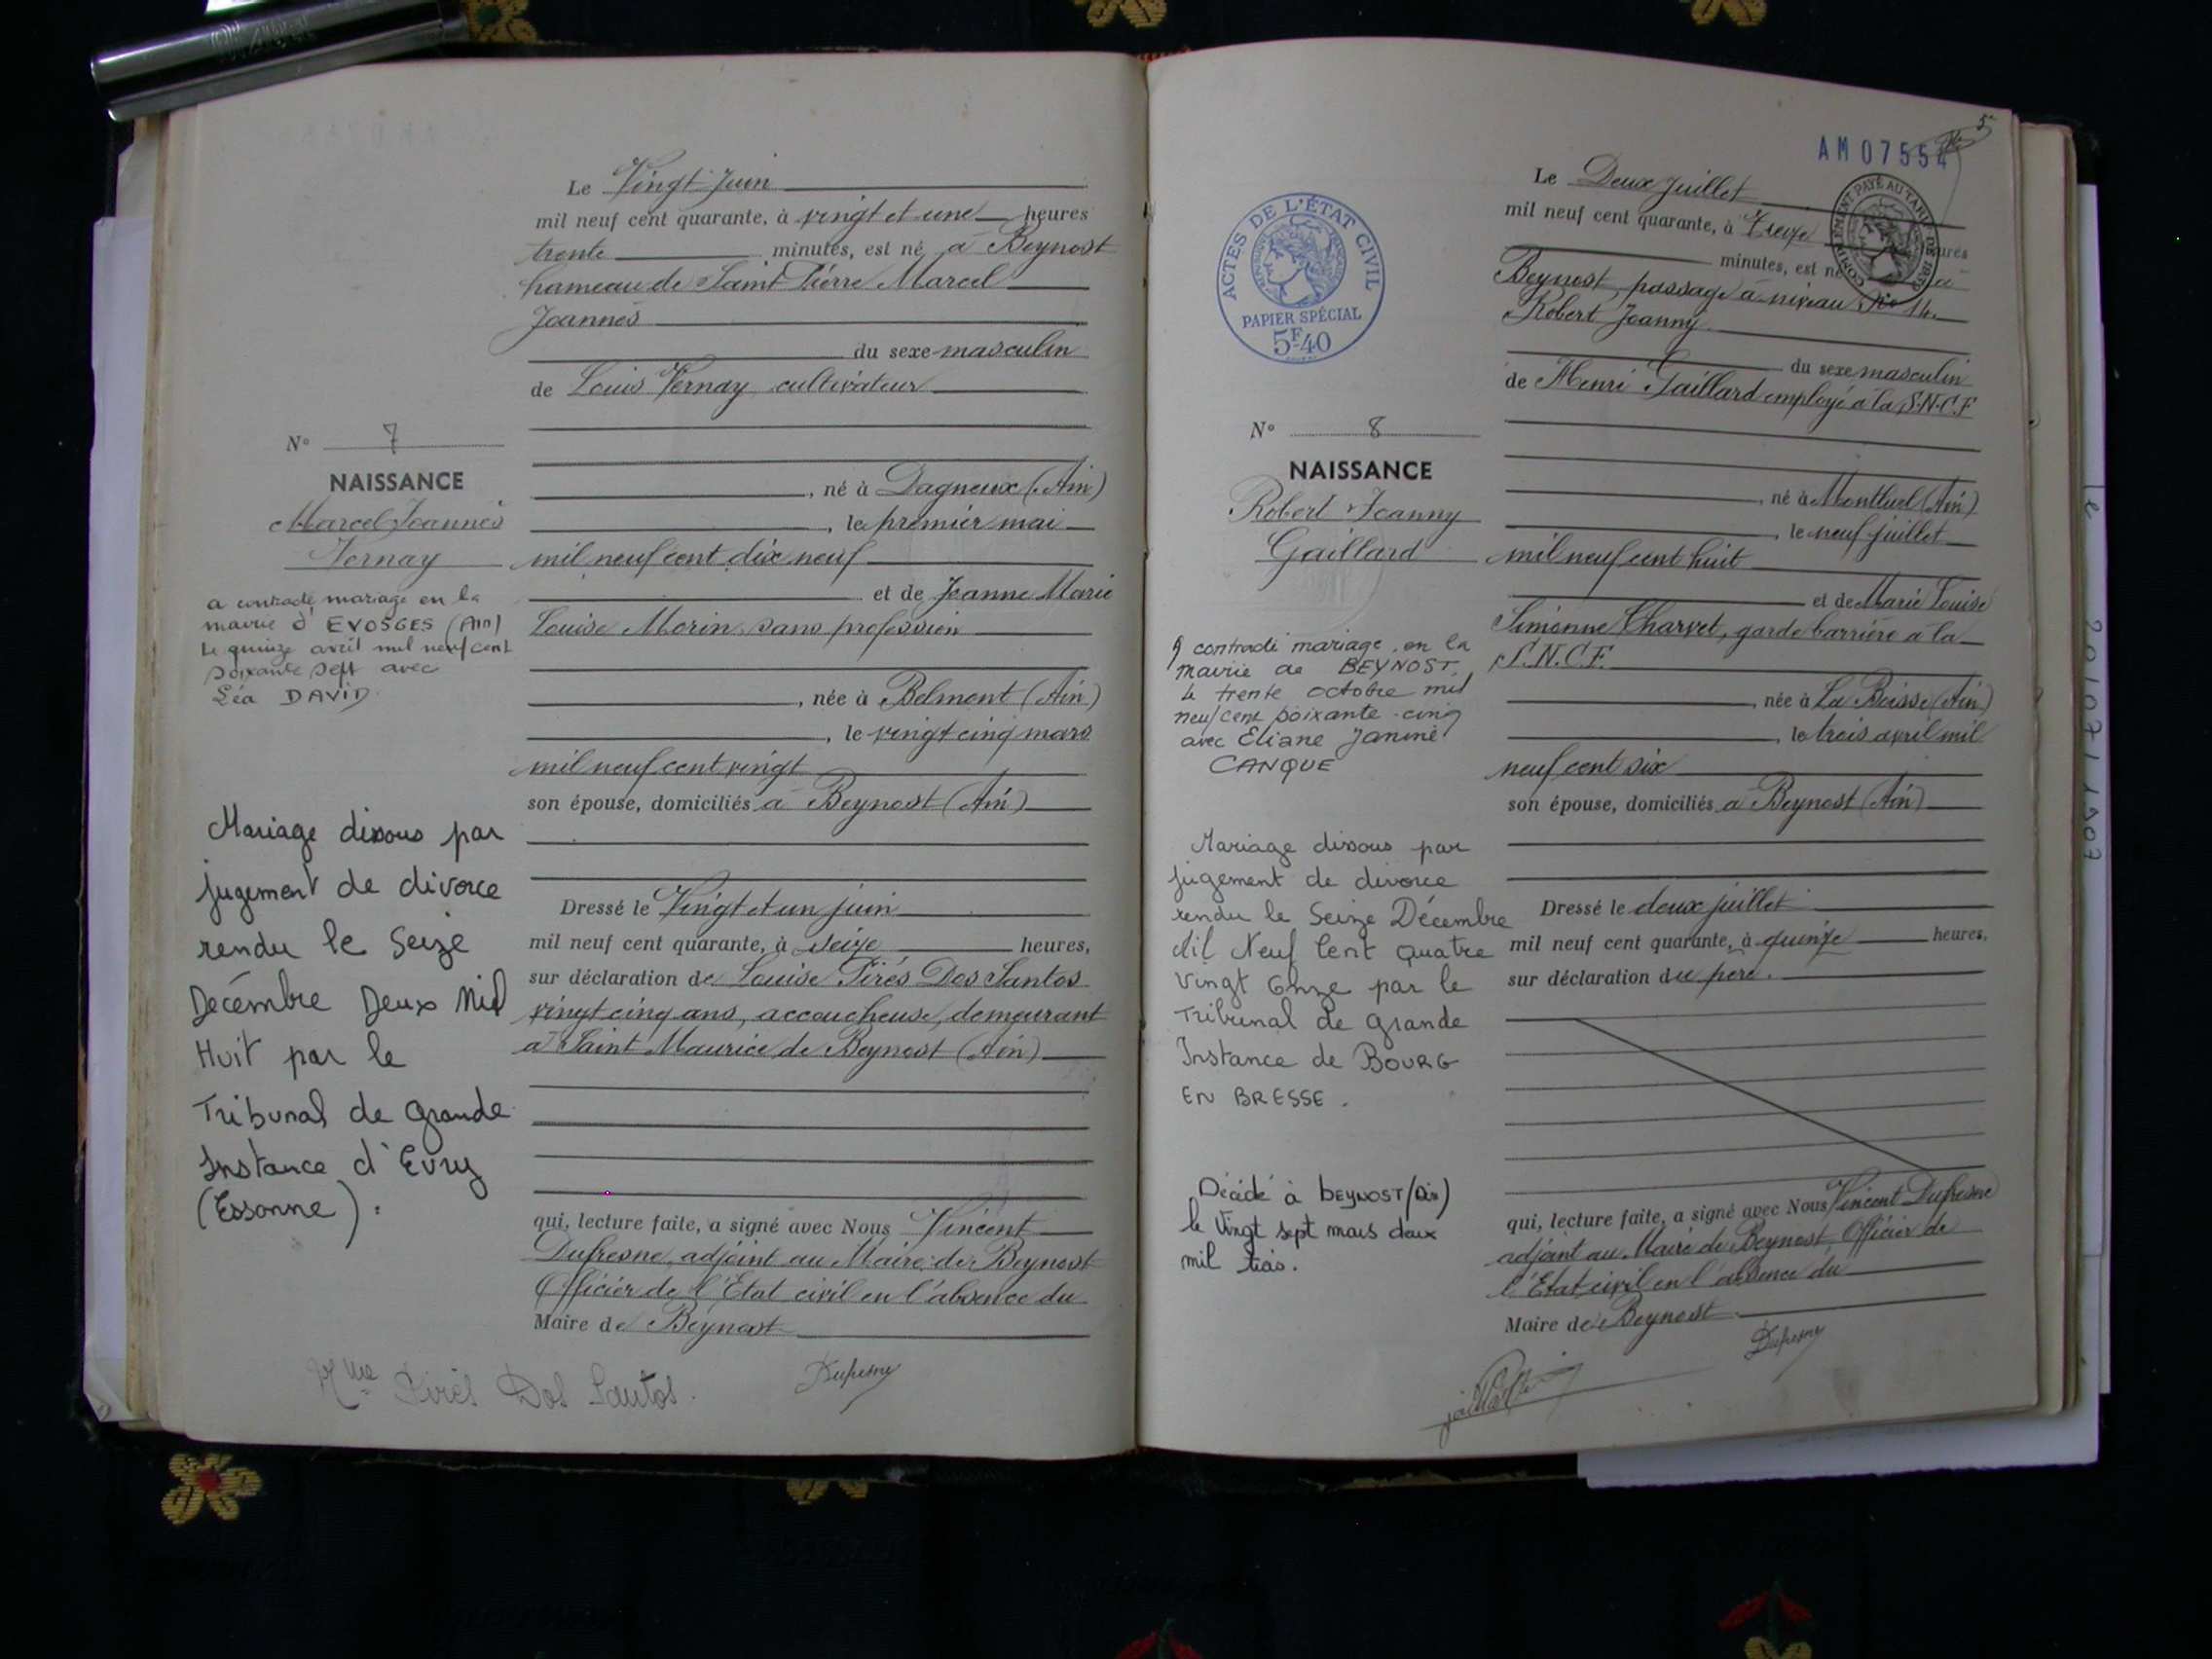 Le Vingt Juin
mil neuf cent quarante, à vingt et une heures
trente minutes, est né à Beynost
hameau de Saint Pierre Marcel
Joannès
du sexe masculin
de Louis Vernay cultivateur
N° 7
NAISSANCE
Marcel Joannès
Vernay
, né à Dagneux (Ain)
, le premier mai
mil neuf cent dix neuf
et de Jeanne Marie
Louise Morin sans profession
a contracté mariage en la
mairie d'EVOSGES (Ain)
le quinze avril mil neuf cent
soixante sept avec
Léa DAVID.
, née à Belmont (Ain)
, le vingt cinq mars
mil neuf cent vingt
son épouse, domiciliés à Beynost (Ain)
Mariage dissous par
jugement de divorce
rendu le Seize
Décembre Deux Mil
Huit par le
Tribunal de Grande
Instance d'Evry
(Essonne).
Dressé le Vingt et un juin
mil neuf cent quarante, à seize heures,
sur déclaration de Louise Pirès Dos Santos
vingt cinq ans, accoucheuse, demeurant
à Saint Maurice de Beynost (Ain)
qui, lecture faite, a signé avec Nous Vincent
Dufresne, adjoint au Maire de Beynost
Officier de l'Etat civil en l'absence du
Maire de Beynost
Mme Pirès Dos Santos.
Dufresne
AM 07554
5
Le Deux Juillet
mil neuf cent quarante, à Treize heures
minutes, est né à
Beynost, passage à niveau N° 14.
Robert Joanny
du sexe masculin
de Henri Gaillard employé à la S.N.C.F
COMPLEMENT PAYÉ AU TARIF DE
ACTES DE L'ÉTAT CIVIL
PAPIER SPÉCIAL
5F40
N° 8
NAISSANCE
Robert Joanny
Gaillard
, né à Montluel (Ain)
, le neuf juillet
mil neuf cent huit
et de Marie Louise
Simonne Charvet, garde barrière à la
S.N.C.F.
, née à La Boisse (Ain)
, le trois avril mil
neuf cent six
son épouse, domiciliés à Beynost (Ain)
A contracté mariage en la
mairie de BEYNOST,
le trente octobre mil
neuf cent soixante-cinq
avec Eliane Janine
CANQUE
Mariage dissous par
jugement de divorce
rendu le Seize Décembre
Mil Neuf Cent Quatre
Vingt Onze par le
Tribunal de Grande
Instance de BOURG
EN BRESSE.
Décédé à BEYNOST (Ain)
le vingt sept mars deux
mil trois.
Dressé le deux juillet
mil neuf cent quarante, à quinze heures,
sur déclaration du père.
qui, lecture faite, a signé avec Nous Vincent Dufresne
adjoint au Maire de Beynost Officier de
l'Etat civil en l'absence du
Maire de Beynost
Dufresne